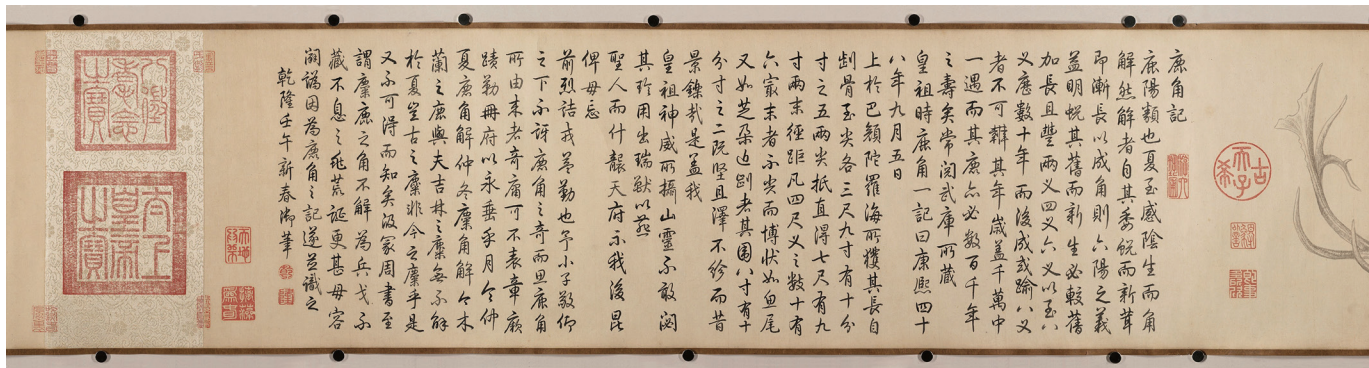 鹿角記
鹿陽類也夏至感陰生而角
解然解者自其委蛻而新茸
即漸長以成角則六陽之義
益明蛻其舊而新生必較舊
加長且豐兩乂四乂六乂以至八
乂應數十年而後成或踰八乂
者不可難其年歲蓋千萬中
一遇而其鹿亦必數百千年
之壽矣常閱武庫所藏
皇祖時鹿角一記曰康熙四十
八年九月五日
上於巴顏陀羅海所獲其長自
骨至尖各三尺九寸有十分
寸之五兩尖抵直得七尺有九
寸兩末徑距凡四尺乂之數十有
六冣末者不尖而博狀如魚尾
又如芝朶近者其圍八寸有十
分寸之二既堅且澤不紾而昔
景鑠哉是蓋我
皇祖神威所攝山靈不敢閟
其珍用出瑞獸以燕
聖人而什襲天府示我後昆
俾毋忘
前烈詰戎蓋勤也予小子敬仰
之下不訝鹿角之奇而思鹿角
所由來者奇庸可不表章厥
蹟勒冊府以永垂乎月令仲
夏鹿角解仲冬麋角解今木
蘭之鹿與夫吉林之麋無不解
於夏豈古之麋非今之麋乎是
又不可得而知矣汲冢周書至
謂麋鹿之角不解為兵戈不
藏不息之兆荒誕更甚毋容
闢譌因為鹿角之記遂並識之
乾隆壬午新春御筆
古希天子
八徵耄念之寶
太上皇帝之寶